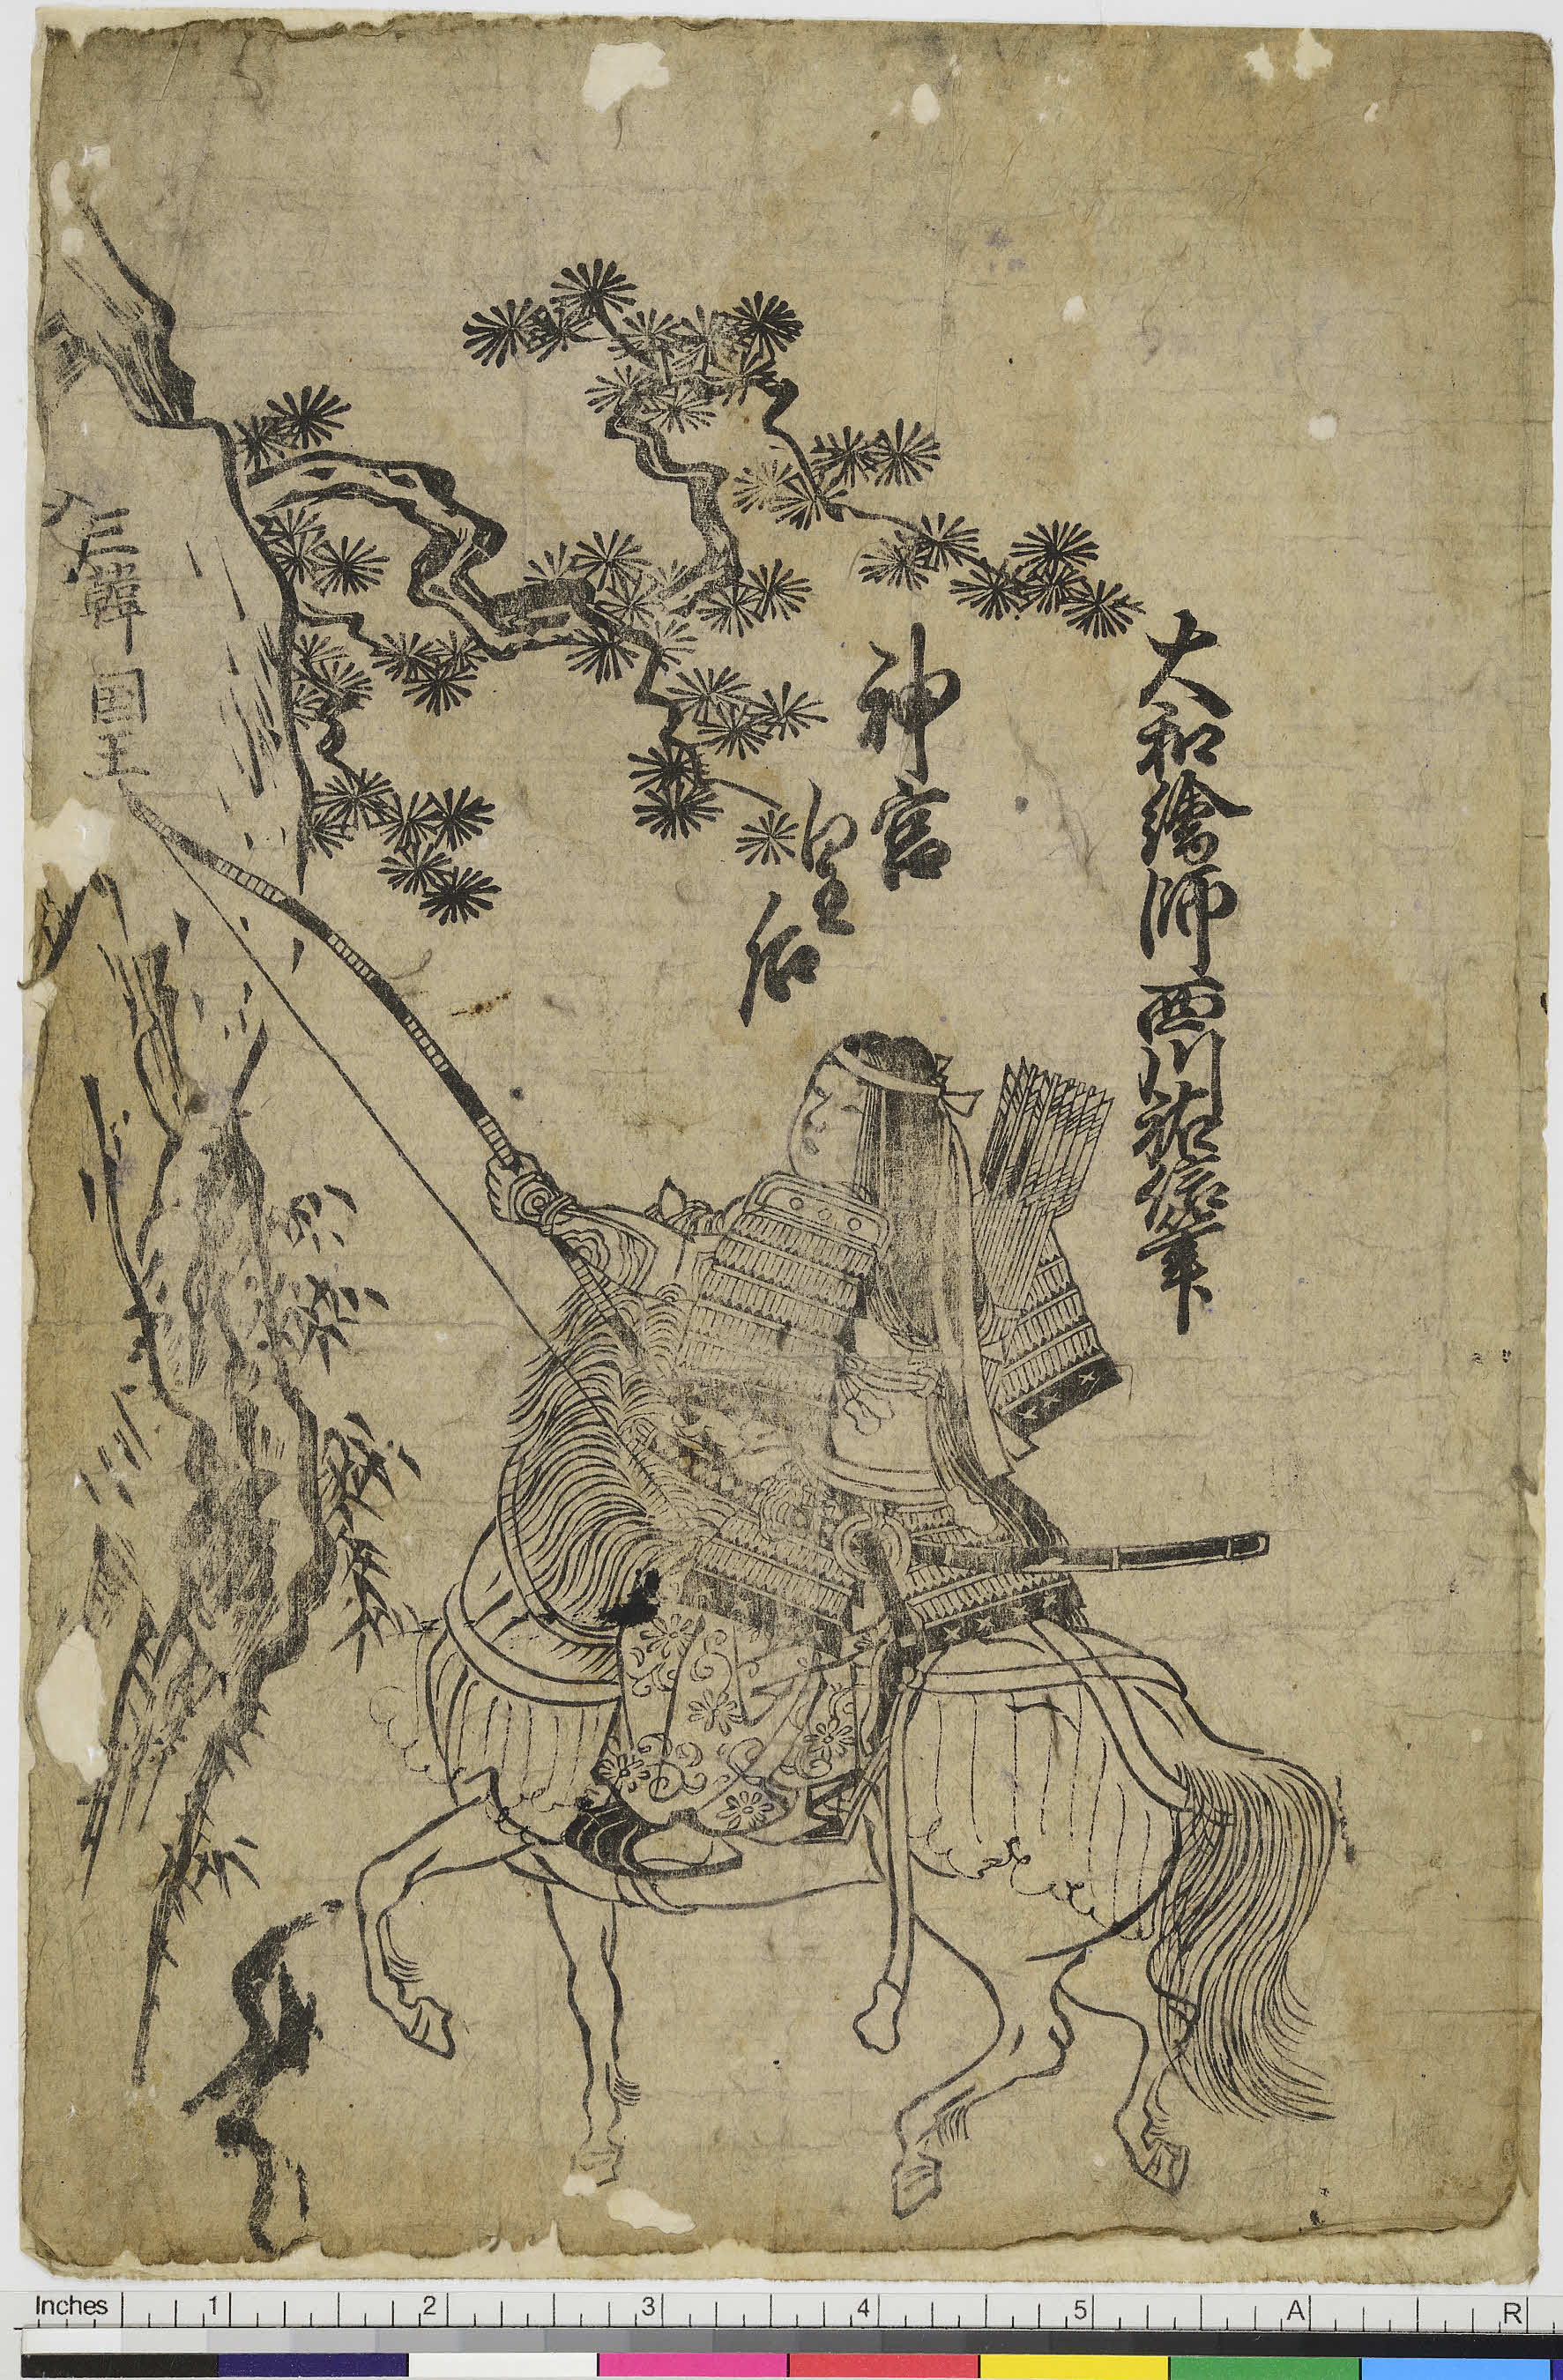 大和繪師西川祐信筆
神宮
皇
后
三韓
国王
Inches 1 2 3 4 5 A R